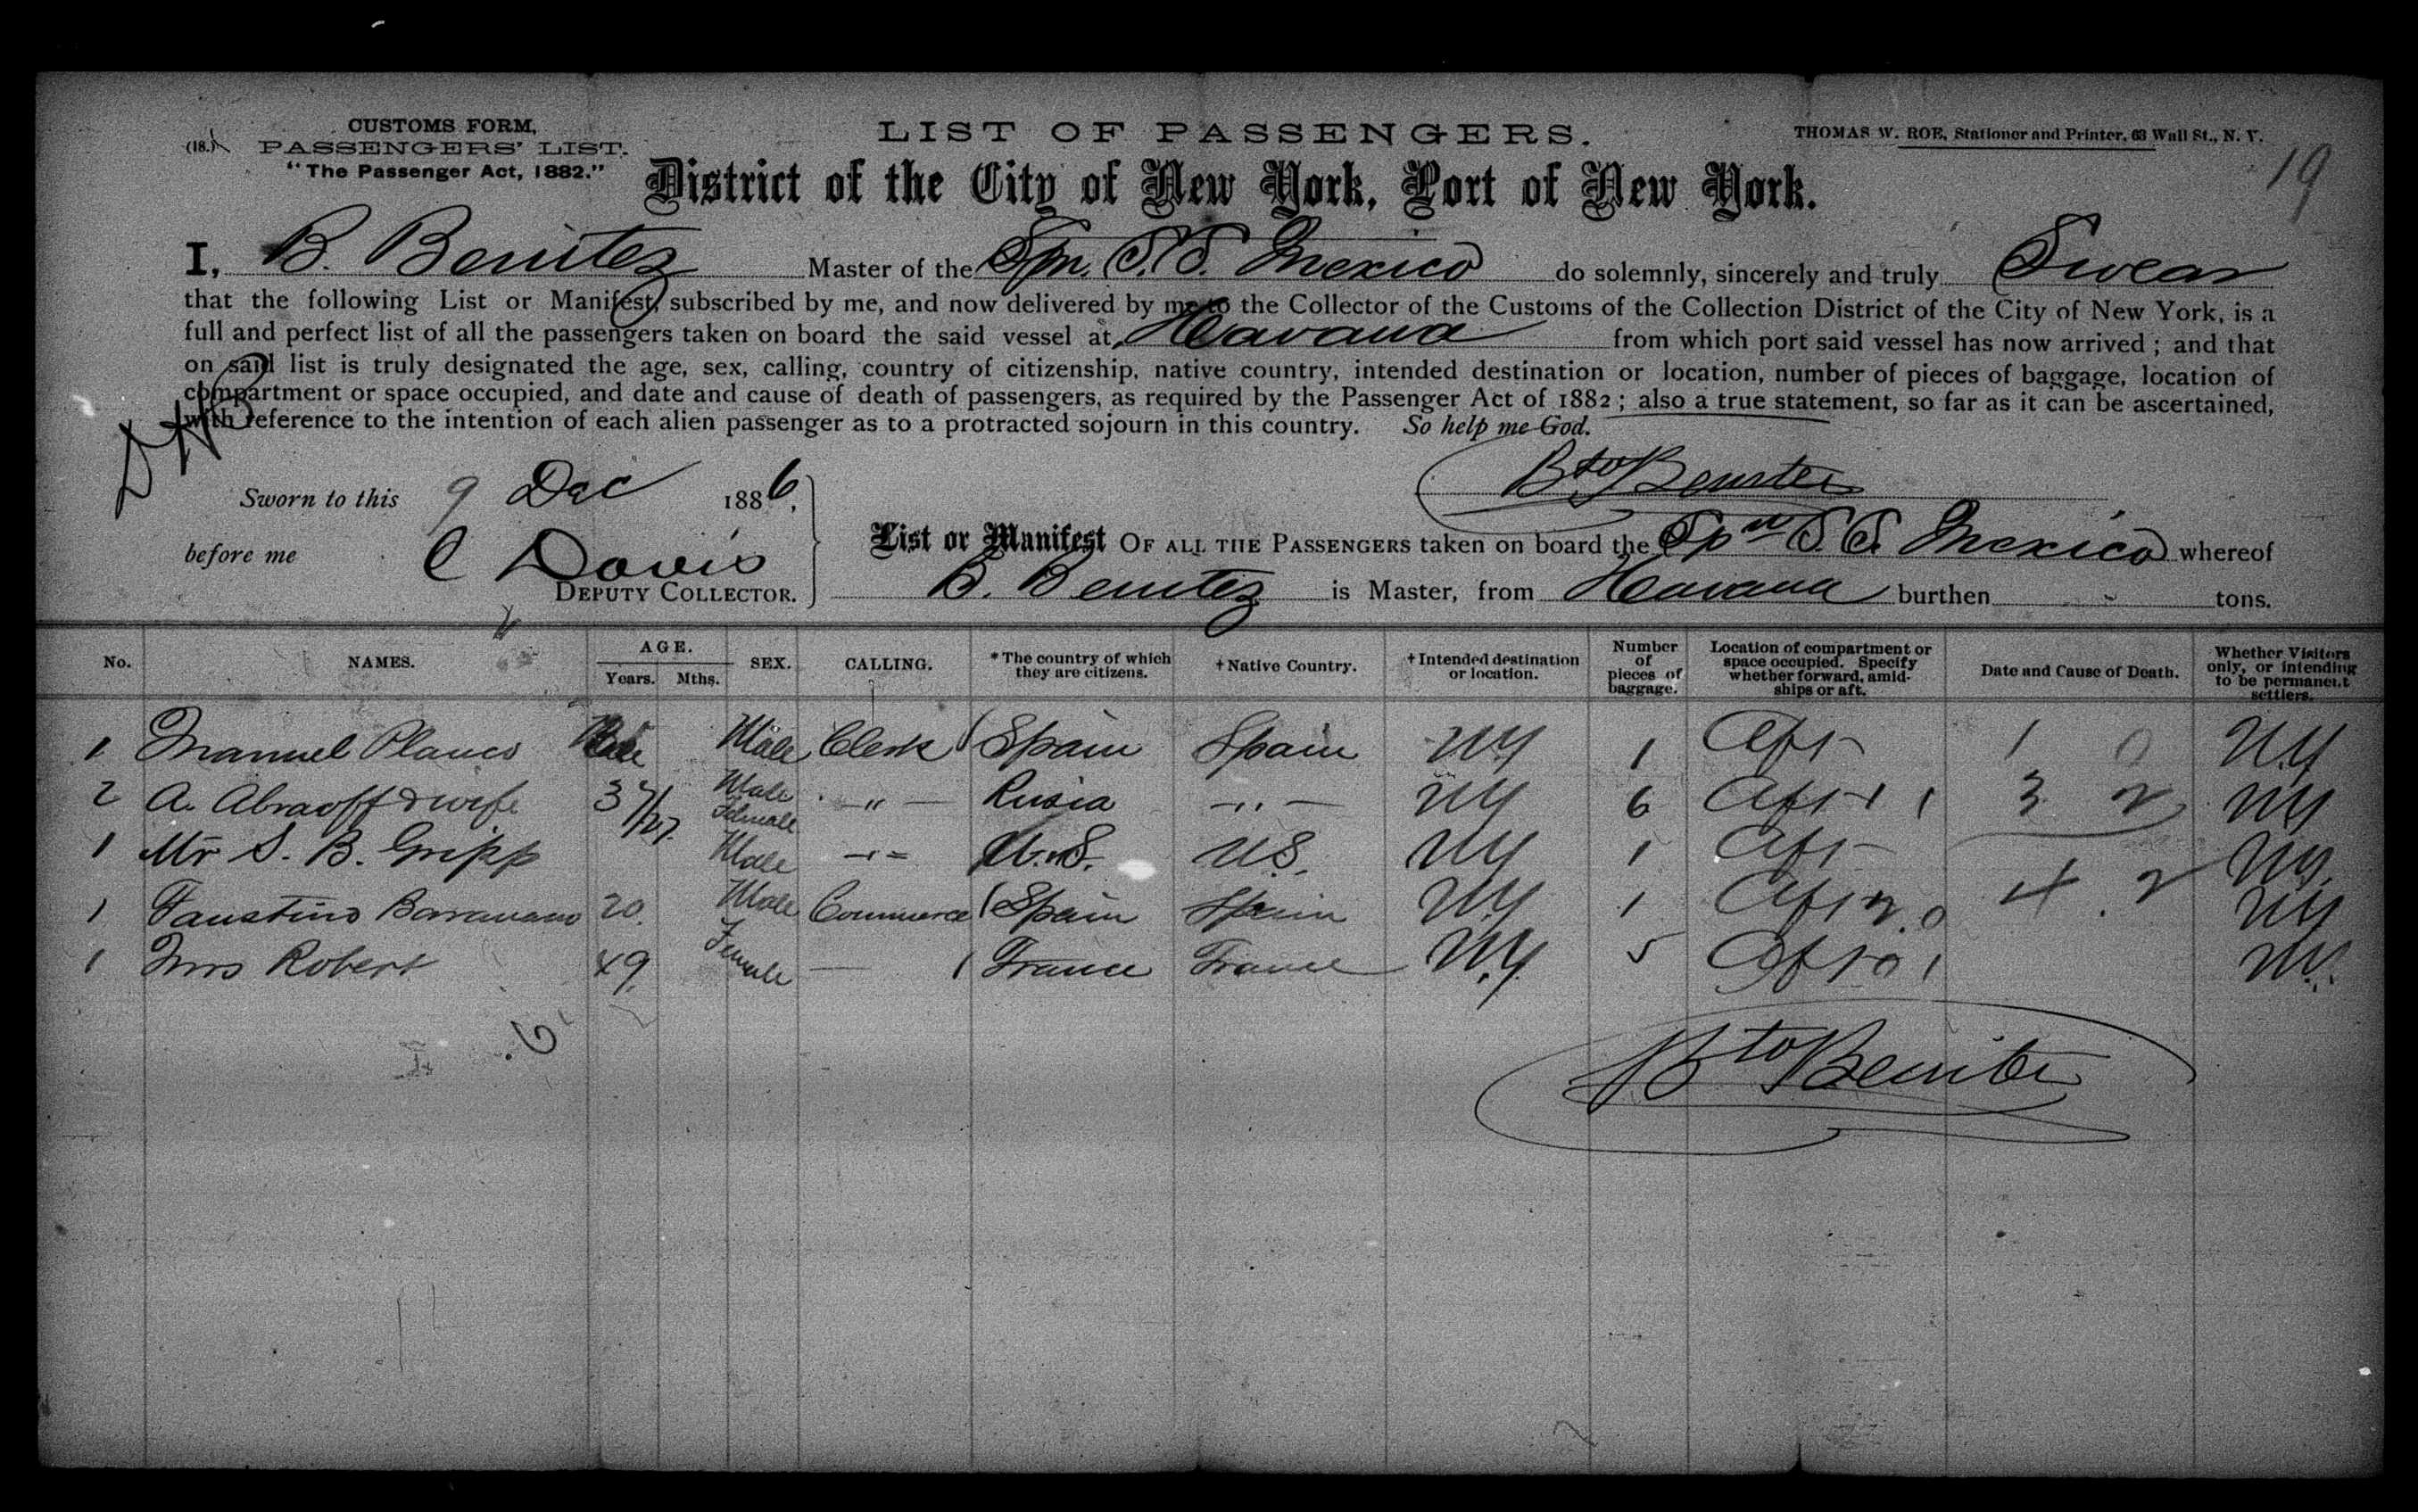 CUSTOMS FORM,
(18.) PASSENGERS' LIST.
"The Passenger Act, 1882."
LIST OF PASSENGERS.
THOMAS W. ROE, Stationer and Printer, 63 Wall St., N. Y.
19
District of the City of New York, Port of New York.
I, B. Benitez Master of the Spn. S.S. Mexico do solemnly, sincerely and truly Swear
that the following List or Manifest, subscribed by me, and now delivered by me to the Collector of the Customs of the Collection District of the City of New York, is a
full and perfect list of all the passengers taken on board the said vessel at Havana from which port said vessel has now arrived; and that
on said list is truly designated the age, sex, calling, country of citizenship, native country, intended destination or location, number of pieces of baggage, location of
compartment or space occupied, and date and cause of death of passengers, as required by the Passenger Act of 1882; also a true statement, so far as it can be ascertained,
with reference to the intention of each alien passenger as to a protracted sojourn in this country. So help me God.
Bto Benitez
Sworn to this 9 Dec 1886,
before me C Davis
DEPUTY COLLECTOR.
List or Manifest OF ALL THE PASSENGERS taken on board the Spn S.S. Mexico whereof
B. Benitez is Master, from Havana burthen tons.
No. NAMES. AGE. Years. Mths. SEX. CALLING. *The country of which they are citizens. †Native Country. †Intended destination or location. Number of pieces of baggage. Location of compartment or space occupied. Specify whether forward, amidships or aft. Date and Cause of Death. Whether Visitors only, or intending to be permanent settlers.
1 Manuel Planco Male Clerk Spain Spain N.Y 1 Aft 1 0 N.Y
2 A. Abraoff & wife 37/27 Male Female — " — Rusia — " — N.Y 6 Aft 1 1 3 2 N.Y
1 Mr S. B. Gripp Male — " — U.S. U.S. N.Y 1 Aft N.Y.
1 Faustino 20 Male Commerce Spain Spain N.Y 1 Aft 2.0 4.2 N.Y
1 Mrs Robert 49 Female — France France N.Y. 5 Aft 0 1 N.Y.
6
Bto Benitez